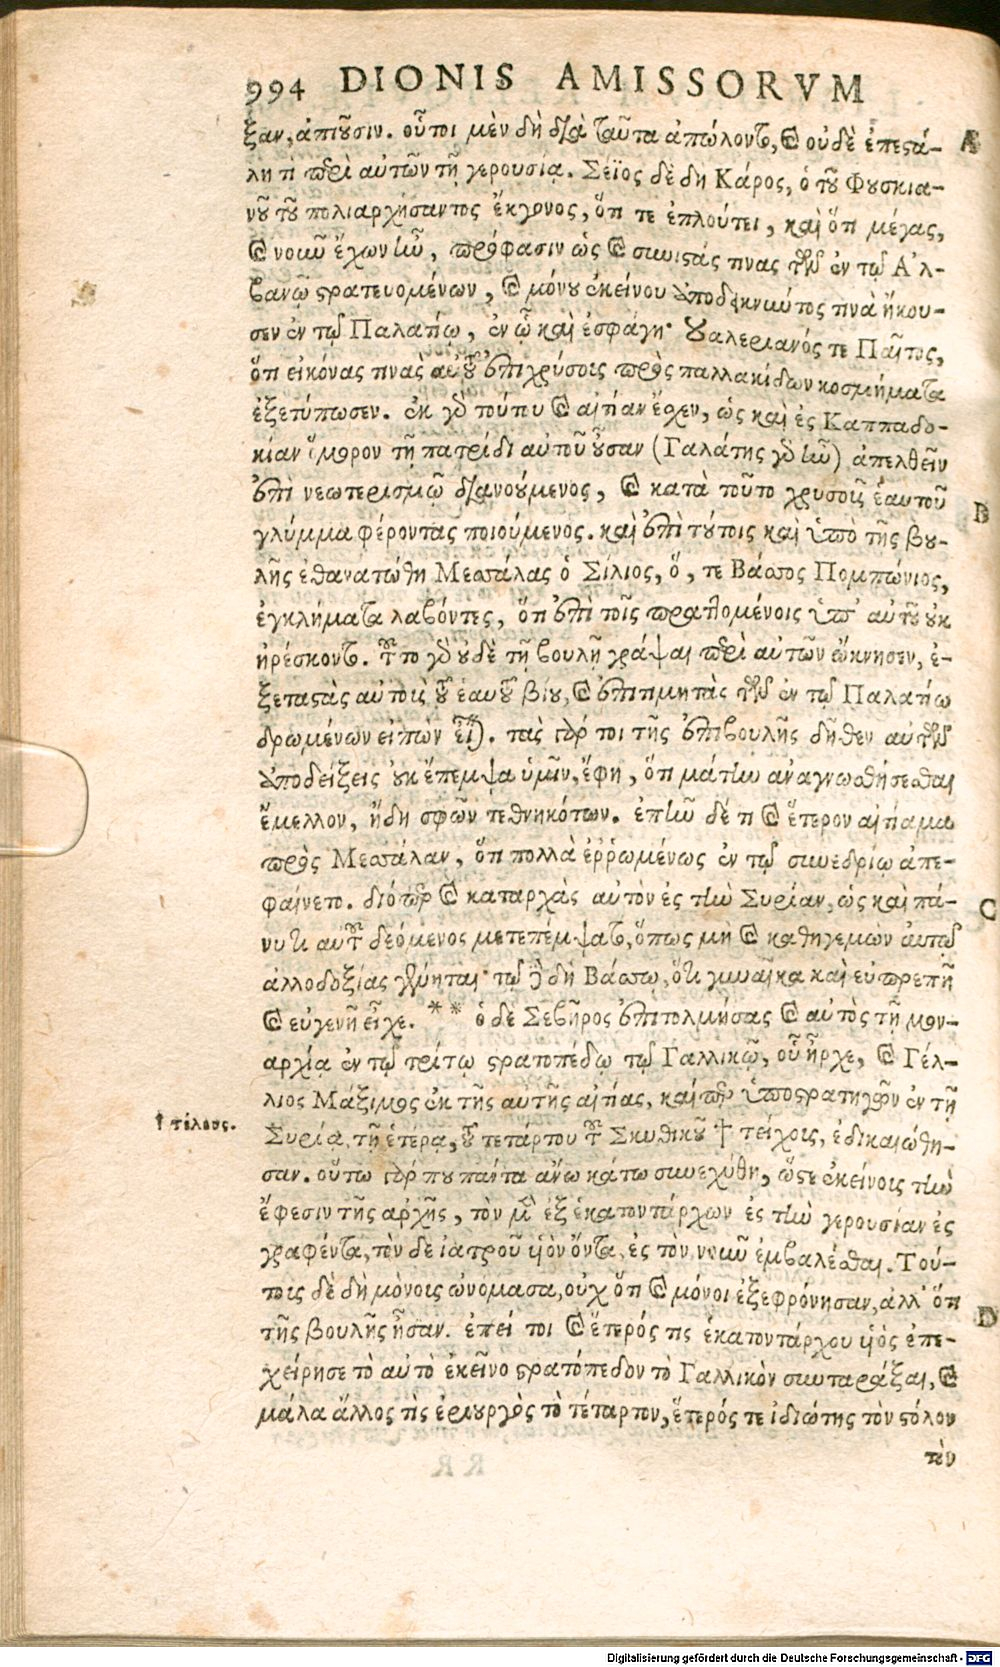 994 DIONIS AMISSORVM
ξαν, ἀπιοῦσιν. οὗτοι μὲν δὴ διὰ ταῦτα ἀπώλοντο, καὶ οὐδὲ ἐπεστά-
λη τὶ περὶ αὐτῶν τῇ γερουσίᾳ. Σέϊος δὲ δὴ Κάρος, ὁ τοῦ Φουσκια-
νοῦ τοῦ πολιαρχήσαντος ἔκγονος, ὅτι τε ἐπλούτει, καὶ ὅτι μέγας,
καὶ νοῦν ἔχων ἦν, πρόφασιν ὡς καὶ συνιστάς τινας τῶν ἐν τῷ Ἀλ-
βανῷ στρατευομένων, καὶ μόνου ἐκείνου ἀποδεικνύτος τινὰ ἤκου-
σεν ἐν τῷ Παλατίῳ, ἐν ᾧ καὶ ἐσφάγη· Ουαλεριανός τε Παῖτος,
ὅτι εἰκόνας τινὰς αὐτοῦ ἐπιχρύσοις πρὸς παλλακίδων κοσμήματα
ἐξετύπωσεν. ἐκ γὸ τούτου καὶ αἰτίαν ἔσχεν, ὡς καὶ ἐς Καππαδο-
κίαν ὅμορον τῇ πατρίδι αὐτοῦ οὖσαν (Γαλάτης γὸ ἦν) ἀπελθεῖν
ἐπὶ νεωτερισμῷ διανούμενος, καὶ κατὰ τοῦτο χρυσοῦς ἑαυτοῦ
γλύμμα φέροντας ποιούμενος. καὶ ἐπὶ τούτοις καὶ ὑπὸ τῆς βου-
λῆς ἐθανατώθη Μεσσάλας ὁ Σίλιος, ὅ, τε Βάσσος Πομπώνιος,
ἐγκλήματα λαβόντες, ὅτι ἐπὶ τοῖς πραττομένοις ὑπ' αὐτοῦ οὐκ
ἠρέσκοντο. τοῦτο γὸ οὐδὲ τῇ βουλῇ γράψαι περὶ αὐτῶν ὤκνησεν, ἐ-
ξεταστὰς αὐτοὺς τοῦ ἑαυτοῦ βίου, καὶ ἐπιτιμητὰς τῶν ἐν τῷ Παλατίῳ
δρωμένων εἰπὼν εἶναι. τὰς γάρ τοι τῆς ἐπιβουλῆς δῆθεν αὐτῶν
ἀποδείξεις οὐκ ἔπεμψα ὑμῖν, ἔφη, ὅτι μάτην ἀναγνωσθήσεσθαι
ἔμελλον, ἤδη σφῶν τεθνηκότων. ἐπῆν δέ τι καὶ ἕτερον αἰτίαμα
πρὸς Μεσσάλαν, ὅτι πολλὰ ἐῤῥωμένως ἐν τῷ συνεδρίῳ ἀπε-
φαίνετο. διόπερ καὶ καταρχὰς αὐτὸν ἐς τὴν Συρίαν, ὡς καὶ πά-
νυ τι αὐτοῦ δεόμενος μετεπέμψατο, ὅπως μὴ καὶ καθηγεμὼν αὐτῷ
ἀλλοδοξίας γένηται· τῷ δὲ δὴ Βάσσῳ, ὅτι γυναῖκα καὶ εὐπρεπῆ
καὶ εὐγενῆ εἶχε. * * ὁ δὲ Σεβῆρος ἐπιτολμήσας καὶ αὐτὸς τῇ μον-
αρχίᾳ ἐν τῷ τρίτῳ στρατοπέδῳ τῷ Γαλλικῷ, οὗ ἦρχε, καὶ Γέλ-
λιος Μάξιμος ἐκ τῆς αὐτῆς αἰτίας, καίπερ ὑποστρατηγῶν ἐν τῇ
Συρίᾳ, τῇ ἑτέρᾳ, τοῦ τετάρτου τοῦ Σκυθικοῦ † τείχοις, ἐδικαιώθη-
σαν. οὕτω γάρ που πάντα ἄνω κάτω συνεχύθη, ὥστε ἐκείνοις τὴν
ἔφεσιν τῆς ἀρχῆς, τὸν μὲν ἐξ ἑκατοντάρχων ἐς τὴν γερουσίαν ἐς
γραφέντα, τὸν δὲ ἰατροῦ υἱὸν ὄντα, ἐς τὸν νοῦν ἐμβαλέσθαι. Τού-
τοις δὲ δὴ μόνοις ὠνομασα, οὐχ ὅτι καὶ μόνοι ἐξεφρόνησαν, ἀλλ' ὅτι
τῆς βουλῆς ἦσαν. ἐπεί τοι καὶ ἕτερός τις ἑκατοντάρχου υἱὸς ἐπε-
χείρησε τὸ αὐτὸ ἐκεῖνο στρατόπεδον τὸ Γαλλικὸν συνταράξαι, καὶ
μάλα ἄλλος τὶς ἐριουργὸς τὸ τέταρτον, ἕτερός τε ἰδιώτης τὸν στόλον
τὸν
† τέλους.
A
B
C
D
Digitalisierung gefördert durch die Deutsche Forschungsgemeinschaft - DFG